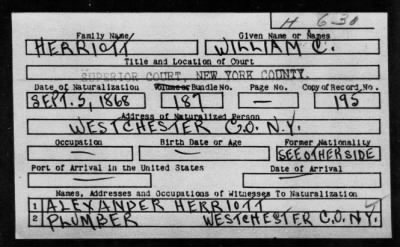 H 630
Family Name Given Name or Names
HERRIOTT WILLIAM C.
Title and Location of Court
SUPERIOR COURT, NEW YORK COUNTY.
Date of Naturalization Volume or Bundle No. Page No. Copy of Record No.
SEPT. 5, 1868 187 — 195
Address of Naturalized Person
WESTCHESTER CO. N.Y.
Occupation Birth Date or Age Former Nationality
— — SEE OTHER SIDE
Port of Arrival in the United States Date of Arrival
— —
Names, Addresses and Occupations of Witnesses To Naturalization
1 ALEXANDER HERRIOTT
2 PLUMBER WESTCHESTER CO. N.Y.